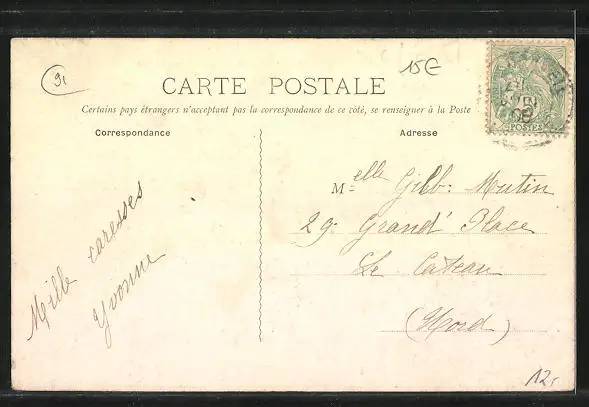 91
15€
CARTE POSTALE
Certains pays étrangers n'acceptant pas la correspondance de ce côté, se renseigner à la Poste
Correspondance
Adresse
Mille caresses
Yvonne
Melle Gilb: Mutin
29 Grand' Place
Le Cateau
(Nord)
POSTES
12,